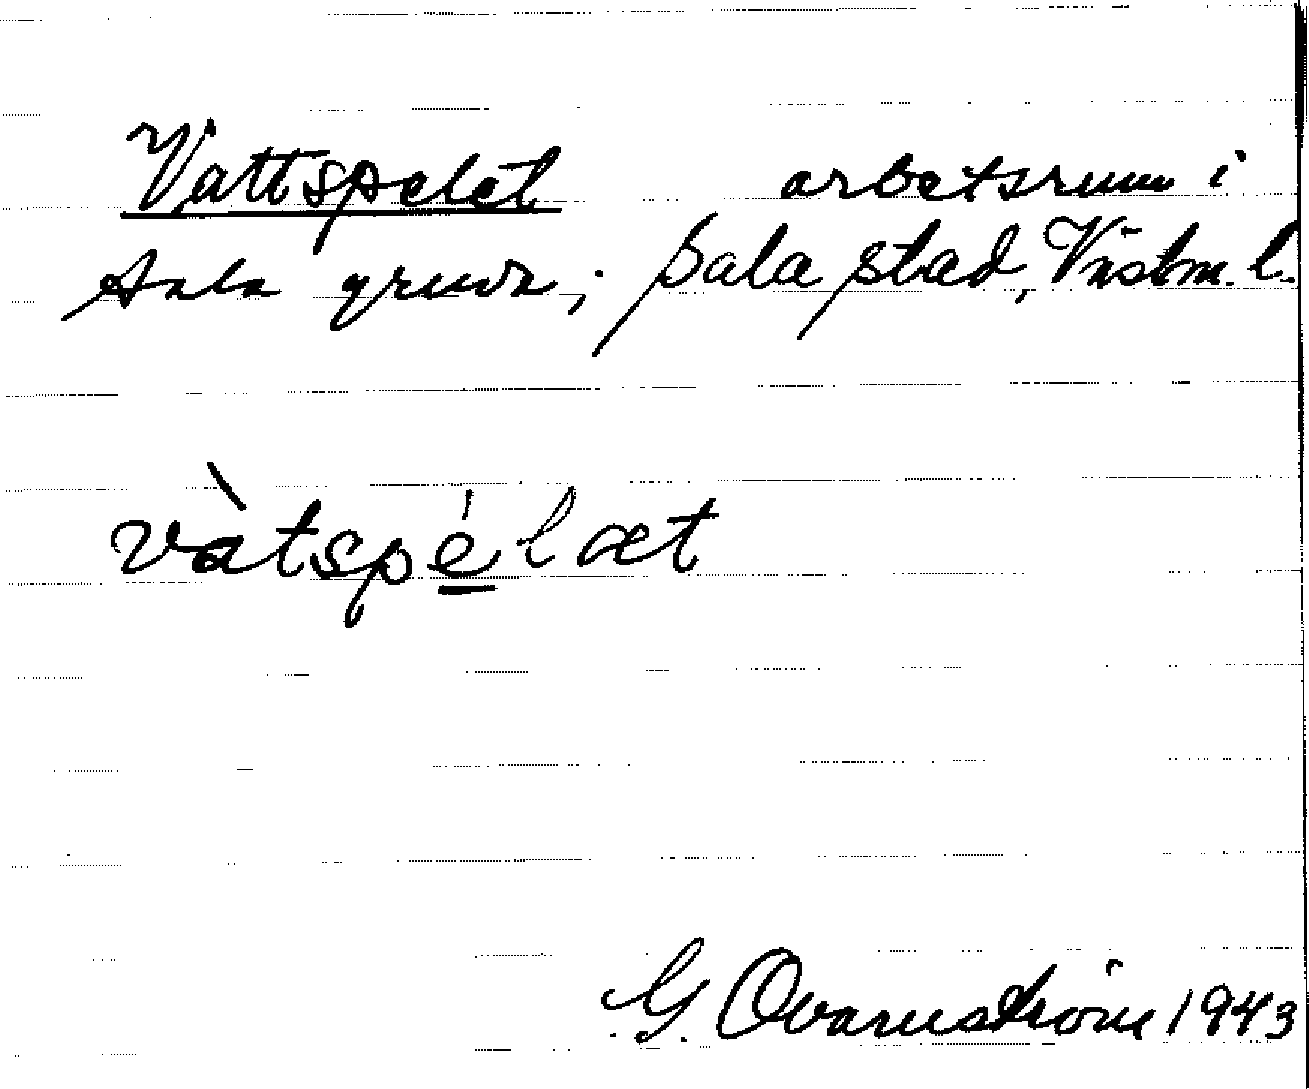 Vattspelet arbetsrum i
Sala gruva; Sala stad, Västm. l.
vàtspélæt
G. Qvarnström 1943